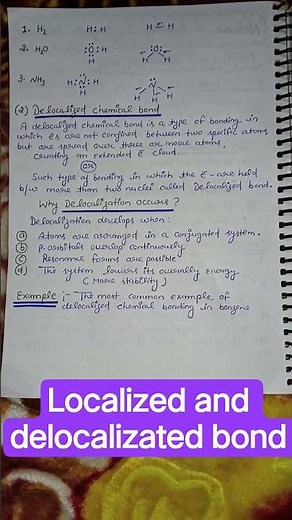 1. H₂ H:H H–H
2. H₂O H:Ö:H H O H
3. NH₃ H:N:H H N H
H H
(2) Delocalized chemical bond
A delocalized chemical bond is a type of bonding in
which e⁻s are not confined between two specific atoms
but are spread over three or more atoms,
creating an extended e⁻ cloud.
(OR)
Such type of bonding in which the e⁻ are held
b/w more than two nuclei called Delocalized bond.
Why Delocalization occurs?
Delocalization develops when:
(a) Atoms are arranged in a conjugated system.
(b) p-orbitals overlap continuously
(c) Resonance forms are possible
(d) The system lowers its overally Energy
(More stability)
Example :- The most common example of
delocalized chemical bonding in benzene
Localized and
delocalizated bond